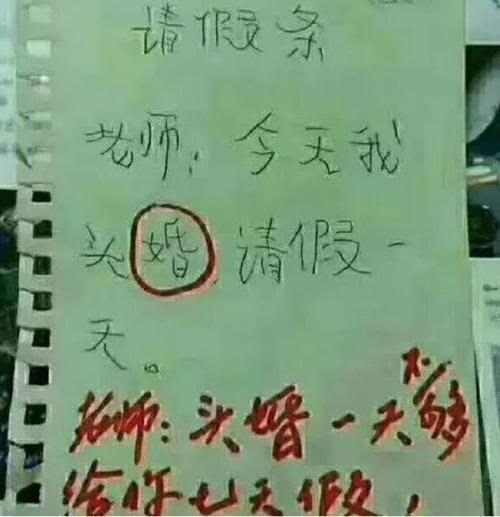 请假条
老师：今天我
头婚，请假一
天。
老师：头婚一天不够
给你七天假，